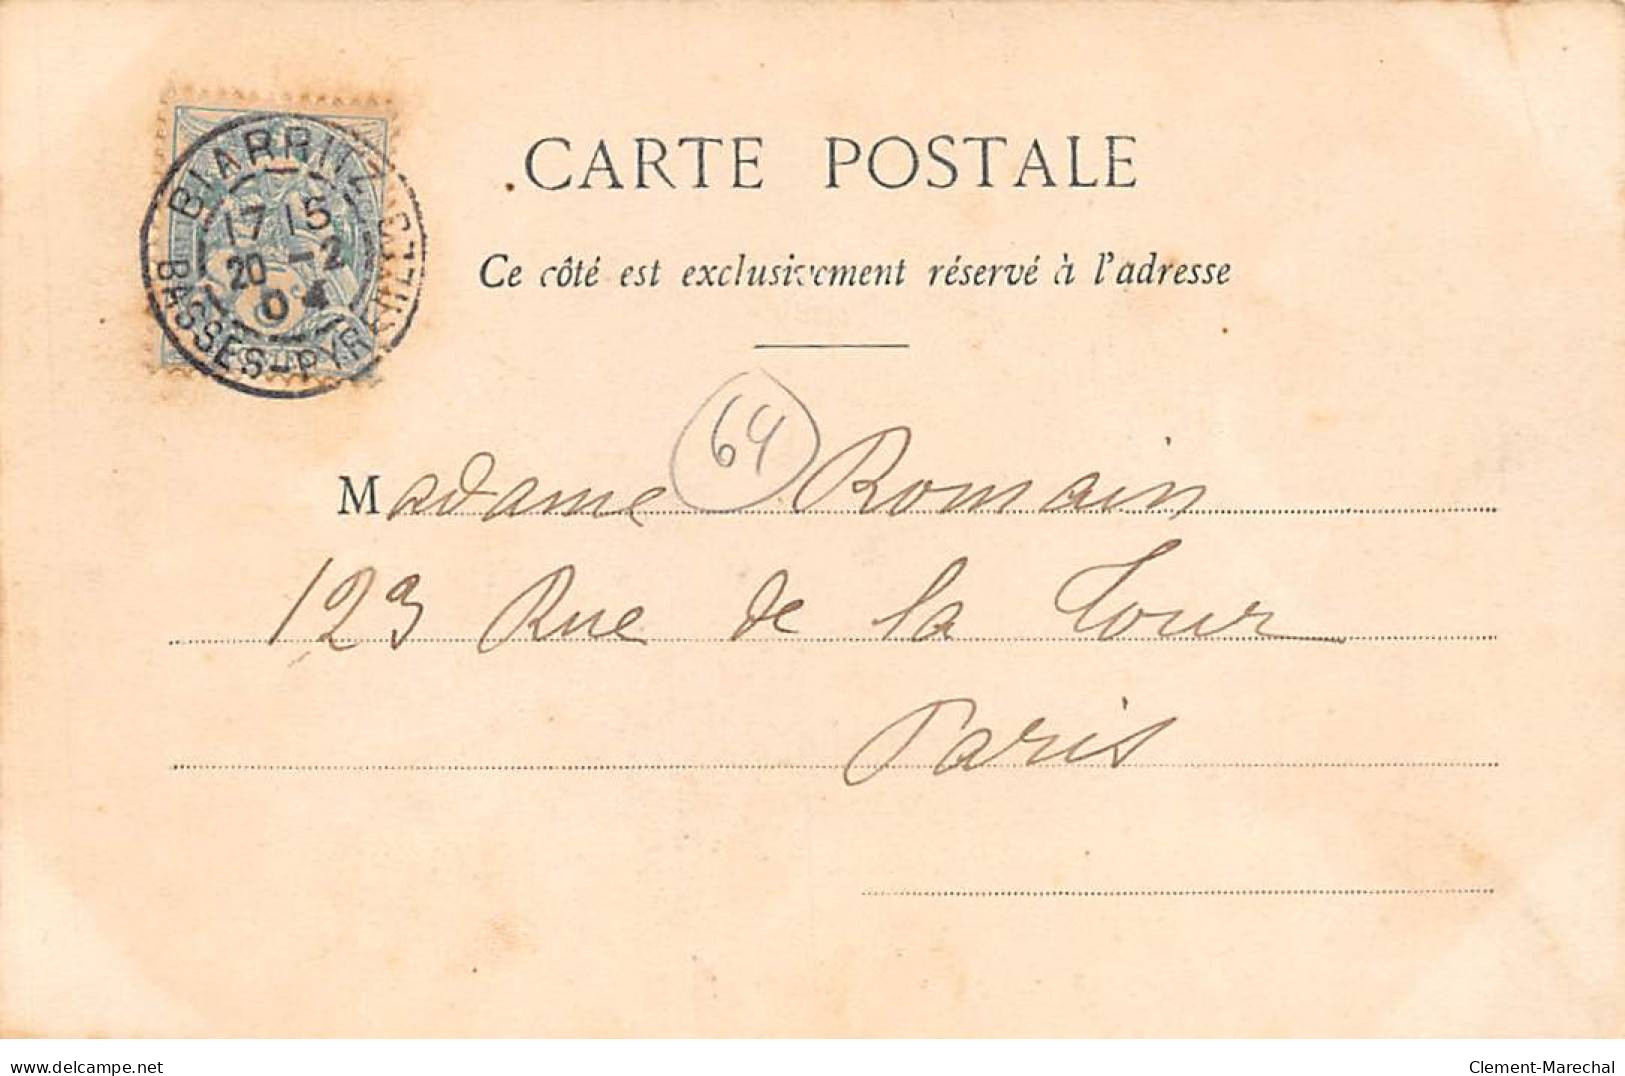 BIARRITZ - VILLE
17 15
20 -2
04
BASSES-PYRÉNÉES
CARTE POSTALE
Ce côté est exclusivement réservé à l'adresse
64
Madame Romain
123 Rue de la Tour
Paris
delcampe.net
Clement-Marechal